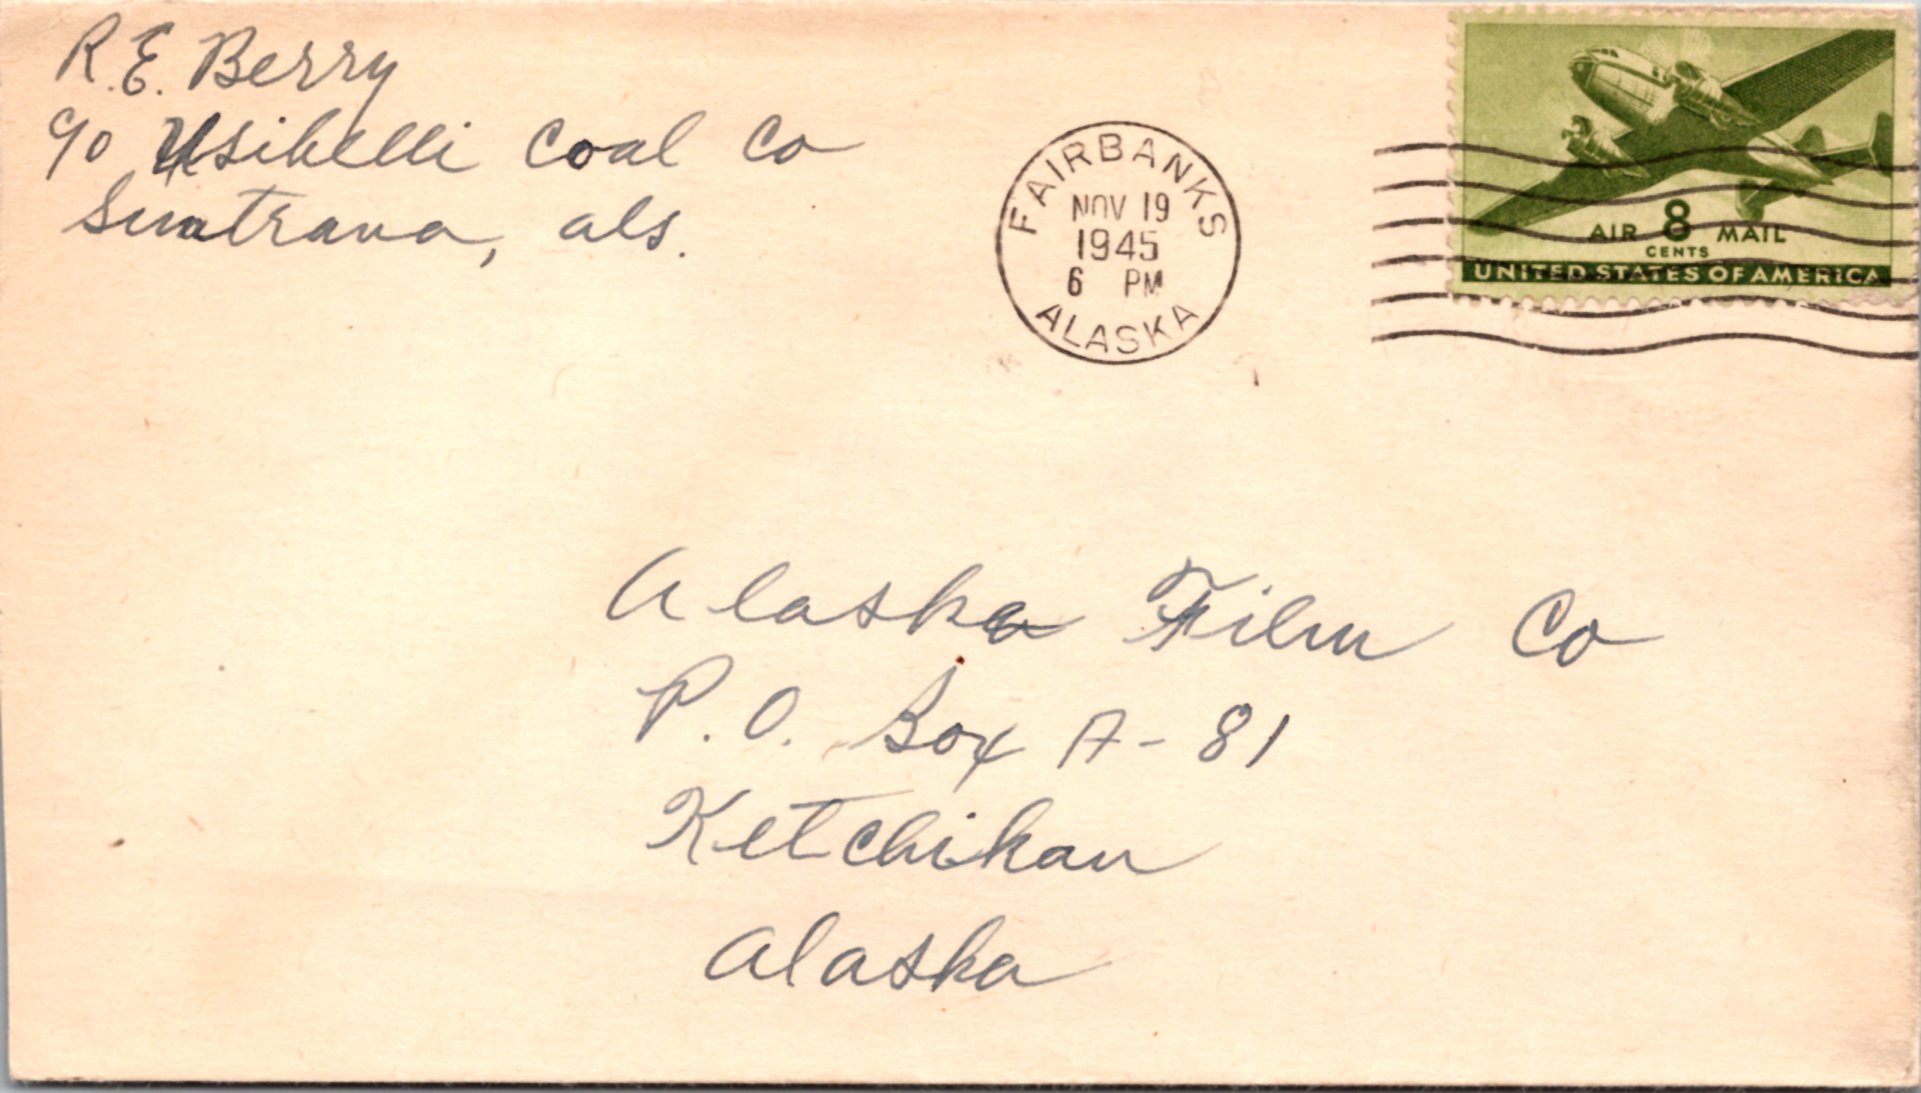 R.E. Berry
c/o Usibelli Coal Co
Suntrana, als.
FAIRBANKS
NOV 19
1945
6 PM
ALASKA
AIR 8 MAIL
CENTS
UNITED STATES OF AMERICA
Alaska Film Co
P.O. Box A-81
Ketchikan
Alaska